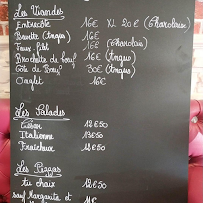 Les Viandes
Entrecôte 16€ XL 20€ (Charolaise)
Bavette (Angus) 16€
Faux filet 16€ (Charolais)
Brochette de boeuf 16€ (Angus)
Côte de Boeuf 30€ (Angus)
Onglet 16€
Les Salades
César 12€50
Italienne 13€50
Fraîcheur 11€50
Les Pizzas
au choix 12€50
sauf Margarita et 11€